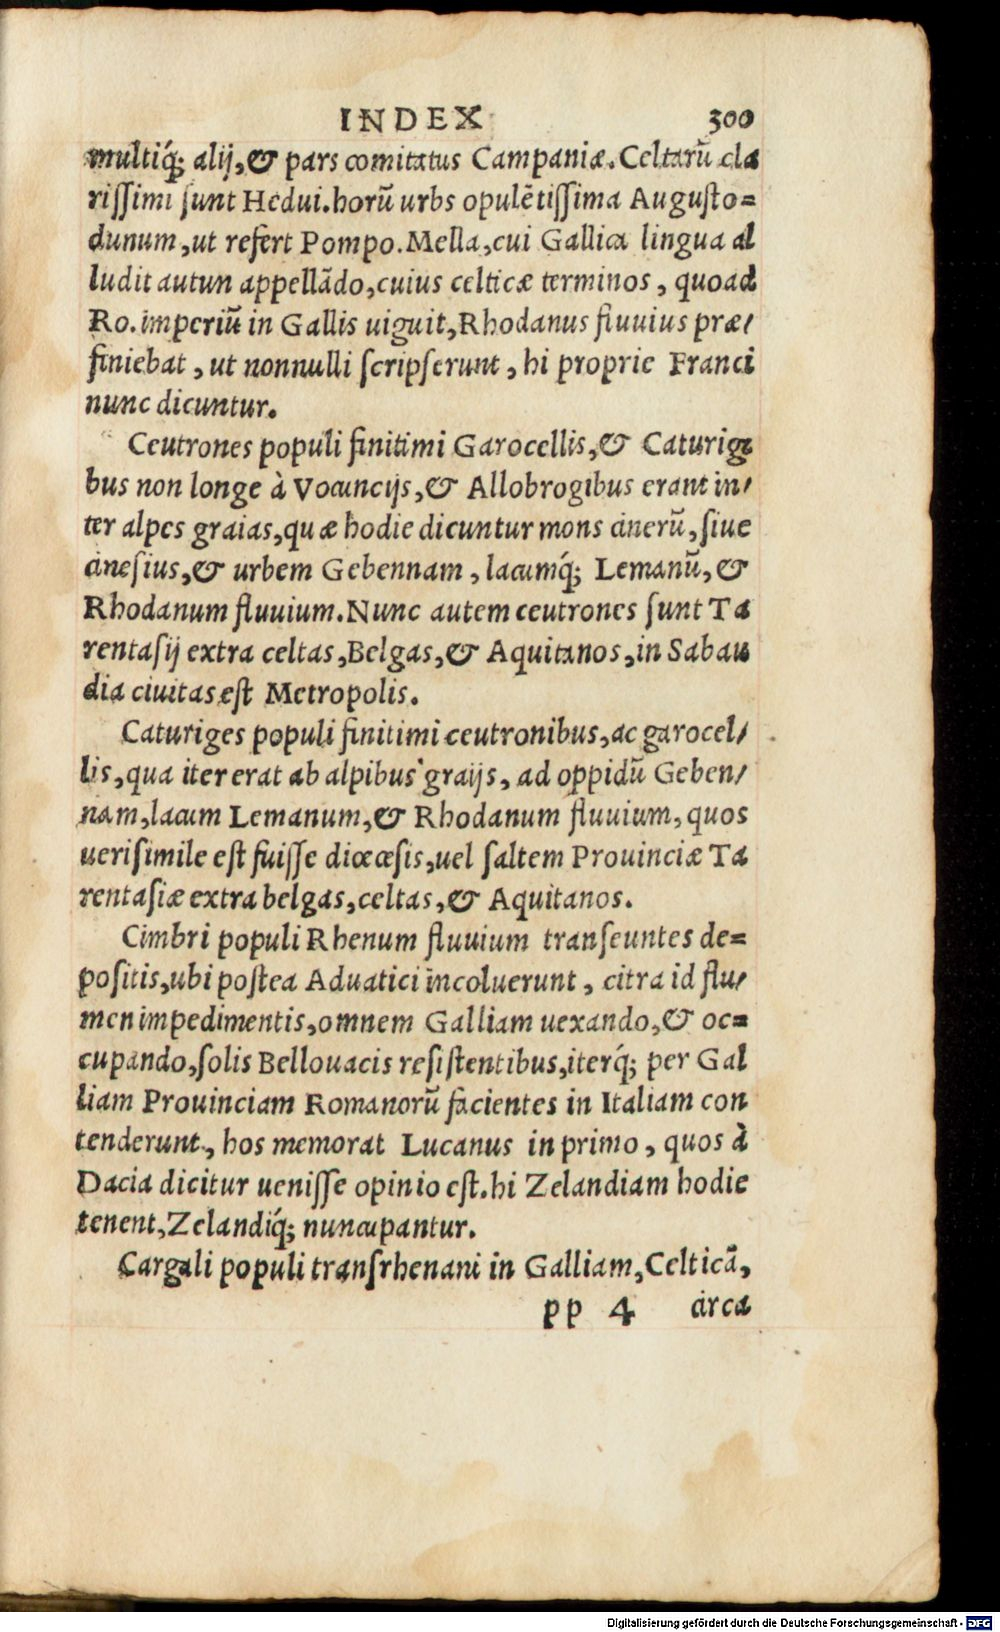 INDEX 300
multiq́; alij, & pars comitatus Campaniæ. Celtarũ cla
rissimi sunt Hedui. horũ urbs opulẽtissima Augusto=
dunum, ut refert Pompo. Mella, cui Gallica lingua al
ludit autun appellãdo, cuius celticæ terminos, quoad
Ro. imperiũ in Gallis uiguit, Rhodanus fluuius præ/
finiebat, ut nonnulli scripserunt, hi proprie Franci
nunc dicuntur.
Ceutrones populi finitimi Garocellis, & Caturigi
bus non longe à Vocuncijs, & Allobrogibus erant in/
ter alpes graias, quæ hodie dicuntur mons cinerũ, siue
cinesius, & urbem Gebennam, lacumq́; Lemanũ, &
Rhodanum fluuium. Nunc autem ceutrones sunt Ta
rentasij extra celtas, Belgas, & Aquitanos, in Sabau
dia ciuitas est Metropolis.
Caturiges populi finitimi ceutronibus, ac garocel/
lis, qua iter erat ab alpibus graijs, ad oppidũ Geben/
nam, lacum Lemanum, & Rhodanum fluuium, quos
uerisimile est fuisse diœcesis, uel saltem Prouinciæ Ta
rentasiæ extra belgas, celtas, & Aquitanos.
Cimbri populi Rhenum fluuium transeuntes de=
positis, ubi postea Aduatici incoluerunt, citra id flu/
men impedimentis, omnem Galliam uexando, & oc=
cupando, solis Bellouacis resistentibus, iterq́; per Gal
liam Prouinciam Romanorũ facientes in Italiam con
tenderunt, hos memorat Lucanus in primo, quos à
Dacia dicitur uenisse opinio est. hi Zelandiam hodie
tenent, Zelandiq́; nuncupantur.
Cargali populi transrhenani in Galliam, Celticã,
pp 4 circa
Digitalisierung gefördert durch die Deutsche Forschungsgemeinschaft - DFG